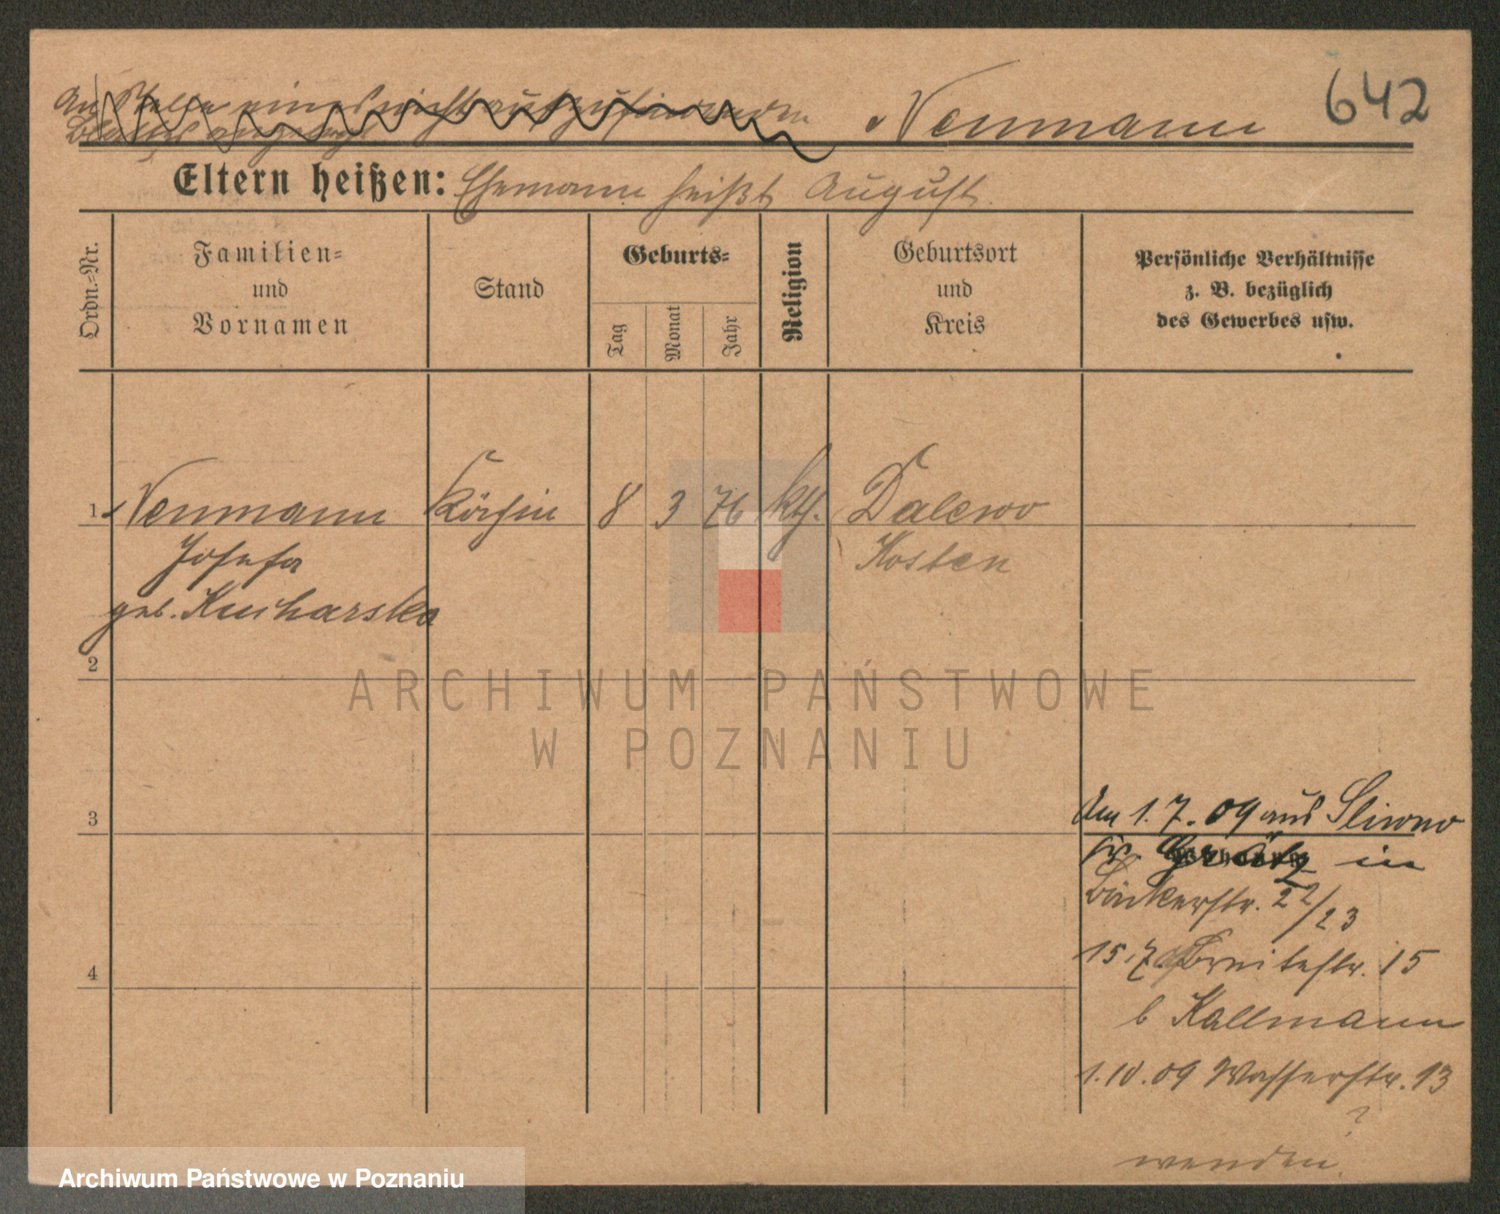 An Stelle eines nicht aufzufindenden
Blattes angelegt
Neumann
642
Eltern heißen: Ehemann heißt August.
Ordn.-Nr.
Familien-
und
Vornamen
Stand
Geburts-
Tag
Monat
Jahr
Religion
Geburtsort
und
Kreis
Persönliche Verhältnisse
z. B. bezüglich
des Gewerbes usw.
1 Neumann Köchin 8 3 76 kth. Dalewo
Josefa Kosten
geb. Kucharska
2
ARCHIWUM PAŃSTWOWE
W POZNANIU
3
Am 1.7.09 aus Sliwno
Kr. Grätz in
Bäckerstr. 22/23
4
15.7. Breitestr. 15
b Kallmann
1.10.09 Wasserstr. 13
?
wenden.
Archiwum Państwowe w Poznaniu